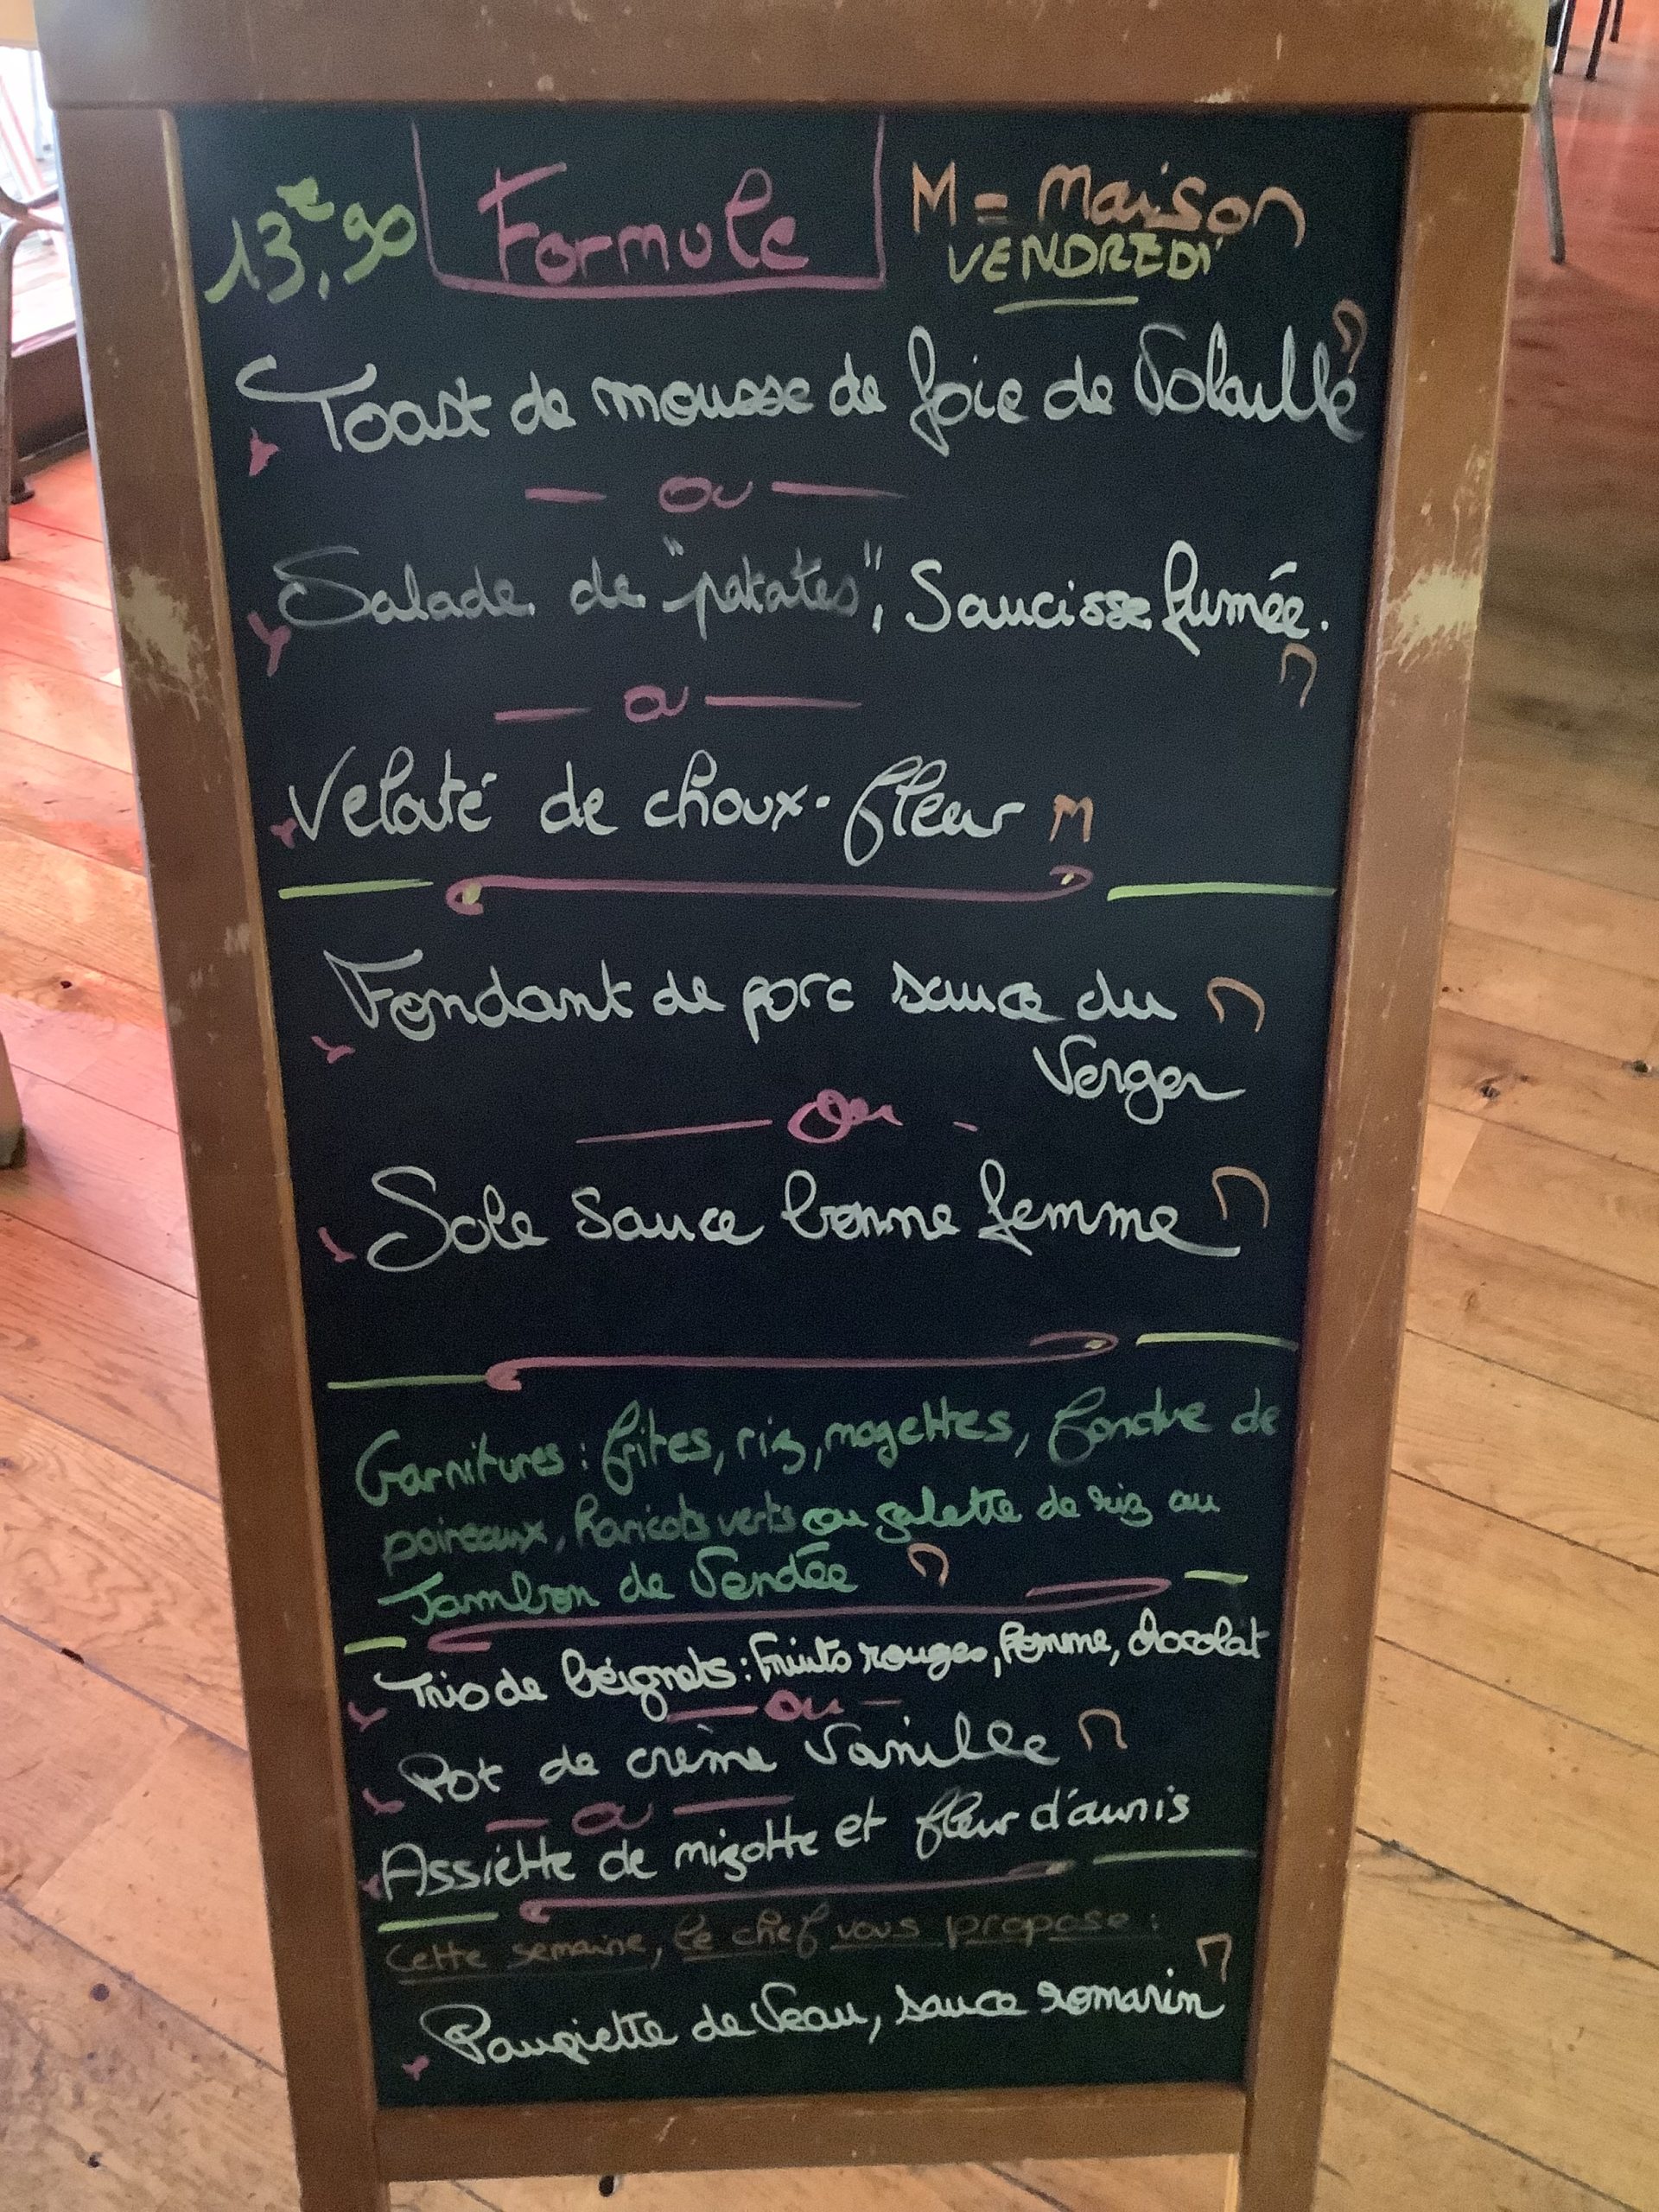 13€,90 Formule M = Maison
VENDREDI
Toast de mousse de foie de Volaille M
ou
Salade de "patates", Saucisse fumée.
M
ou
Velouté de choux-fleur M
Fondant de porc sauce du M
Verger
ou
Sole sauce bonne femme M
Garnitures : frites, riz, mogettes, fondue de
poireaux, haricots verts ou galette de riz au
Jambon de Vendée M
Trio de beignets : Fruits rouges, Pomme, chocolat
ou
Pot de crème Vanille M
ou
Assiette de mizotte et fleur d'aunis
Cette semaine, le chef vous propose :
Paupiette de Veau, sauce romarin M